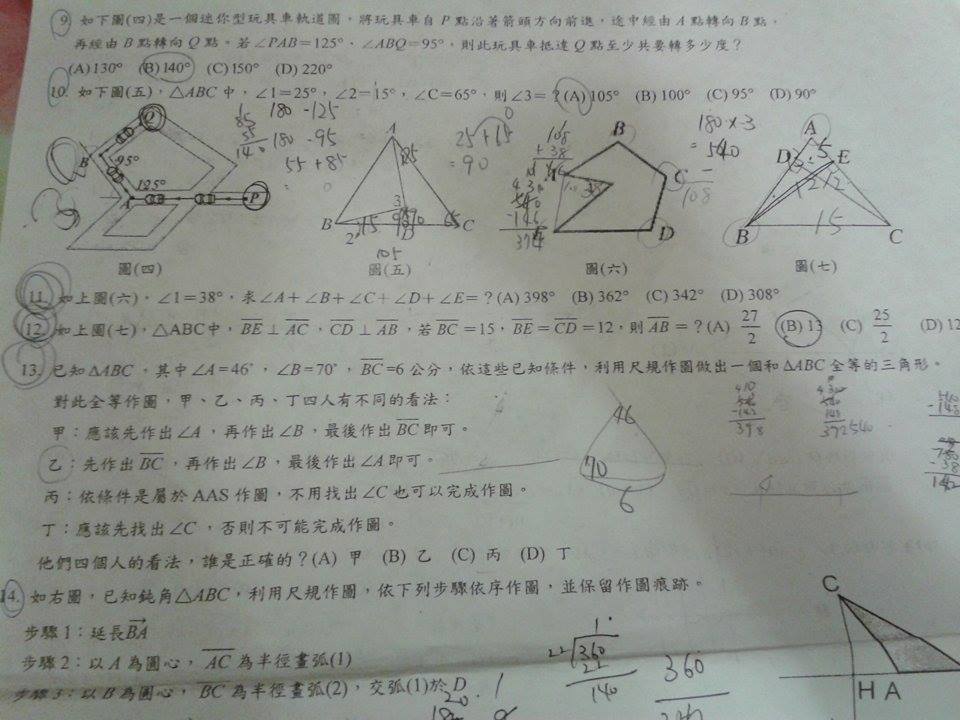 9. 如下圖(四)是一個迷你型玩具車軌道圖，將玩具車自P點沿著箭頭方向前進，途中經由A點轉向B點，
再經由B點轉向Q點。若∠PAB=125°、∠ABQ=95°，則此玩具車抵達Q點至少共要轉多少度？
(A)130° (B)140° (C)150° (D)220°
10. 如下圖(五)，△ABC中，∠1=25°，∠2=15°，∠C=65°，則∠3=？(A) 105° (B) 100° (C) 95° (D) 90°
85
55
140
180 -125
180 -95
55+85
=
25+65
=90
108
+38
180×3
=540
108
Q B 95° 125° A P
A 25 3 B 2 15 D C 65
105
B A C D
430
540
-146
394
A 5 D E 12 12 B 15 C
圖(四) 圖(五) 圖(六) 圖(七)
11. 如上圖(六)，∠1=38°，求∠A+∠B+∠C+∠D+∠E=？(A) 398° (B) 362° (C) 342° (D) 308°
12. 如上圖(七)，△ABC中，BE⊥AC，CD⊥AB，若BC=15，BE=CD=12，則AB=？(A) 27/2 (B) 13 (C) 25/2 (D) 12
13. 已知△ABC，其中∠A=46°，∠B=70°，BC=6公分，依這些已知條件，利用尺規作圖做出一個和△ABC全等的三角形。
對此全等作圖，甲、乙、丙、丁四人有不同的看法：
甲：應該先作出∠A，再作出∠B，最後作出BC即可。
乙：先作出BC，再作出∠B，最後作出∠A即可。
丙：依條件是屬於AAS作圖，不用找出∠C也可以完成作圖。
丁：應該先找出∠C，否則不可能完成作圖。
46
70
6
-142
398
392 540
-38
142
他們四個人的看法，誰是正確的？(A) 甲 (B) 乙 (C) 丙 (D) 丁
14. 如右圖，已知鈍角△ABC，利用尺規作圖，依下列步驟依序作圖，並保留作圖痕跡。
步驟1：延長BA
步驟2：以A為圓心，AC為半徑畫弧(1)
步驟3：以B為圓心，BC為半徑畫弧(2)，交弧(1)於D
1
22 360
22
140
360
C
H A